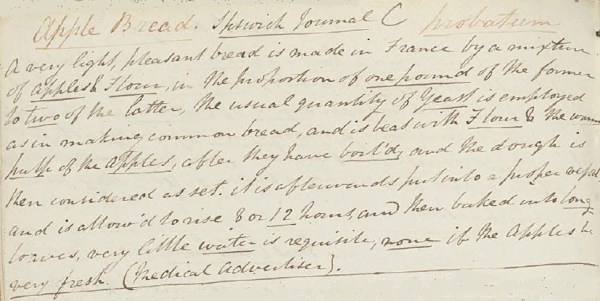 Apple Bread. Ipswich Journal C probatum
A very light, pleasant bread is made in France by a mixture
of Apples & Flour, in the proportion of one pound of the former
to two of the latter, the usual quantity of Yeast is employed
as in making common bread, and is beat with Flour & the warm
pulp of the Apples, after they have boil'd, and the dough is
then considered as set. it is afterwards put into a proper vessel
and is allow'd to rise 8 or 12 hours, and then baked into long
loaves, very little water is requisite, none if the Apples be
very fresh. (Medical Advertiser).